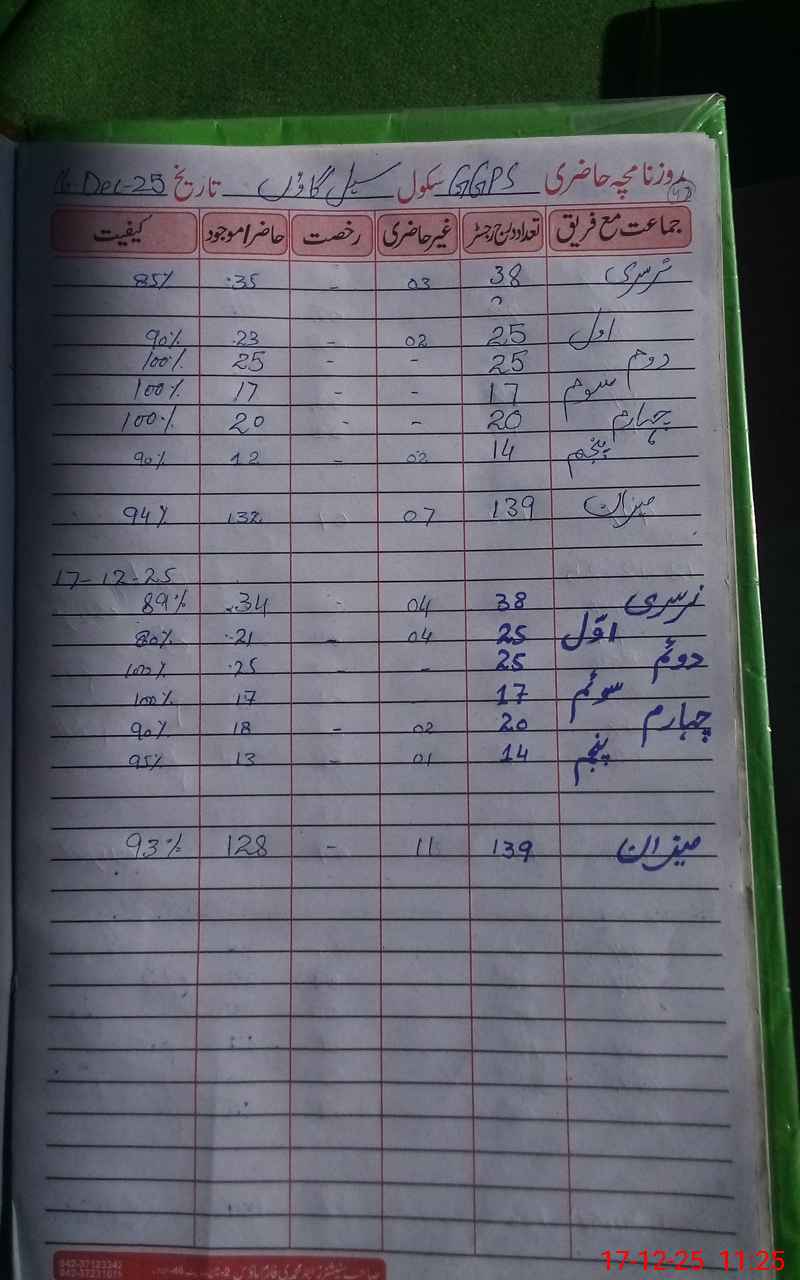 روزنامچہ حاضری GGPS سکول سہل گاؤں تاریخ 16-Dec-25
جماعت مع فریق تعداد درج رجسٹر غیر حاضری رخصت حاضر/موجود کیفیت
نرسری 38 03 - 35 85%
اول 25 02 - 23 90%
دوم 25 - - 25 100%
سوم 17 - - 17 100%
چہارم 20 - - 20 100%
پنجم 14 02 - 12 90%
میزان 139 07 132 94%
17-12-25
نرسری 38 04 - 34 89%
اوّل 25 04 - 21 80%
دوئم 25 - - 25 100%
سوئم 17 17 100%
چہارم 20 02 - 18 90%
پنجم 14 01 - 13 95%
میزان 139 11 - 128 93%
042-37123342
17-12-25 11:25